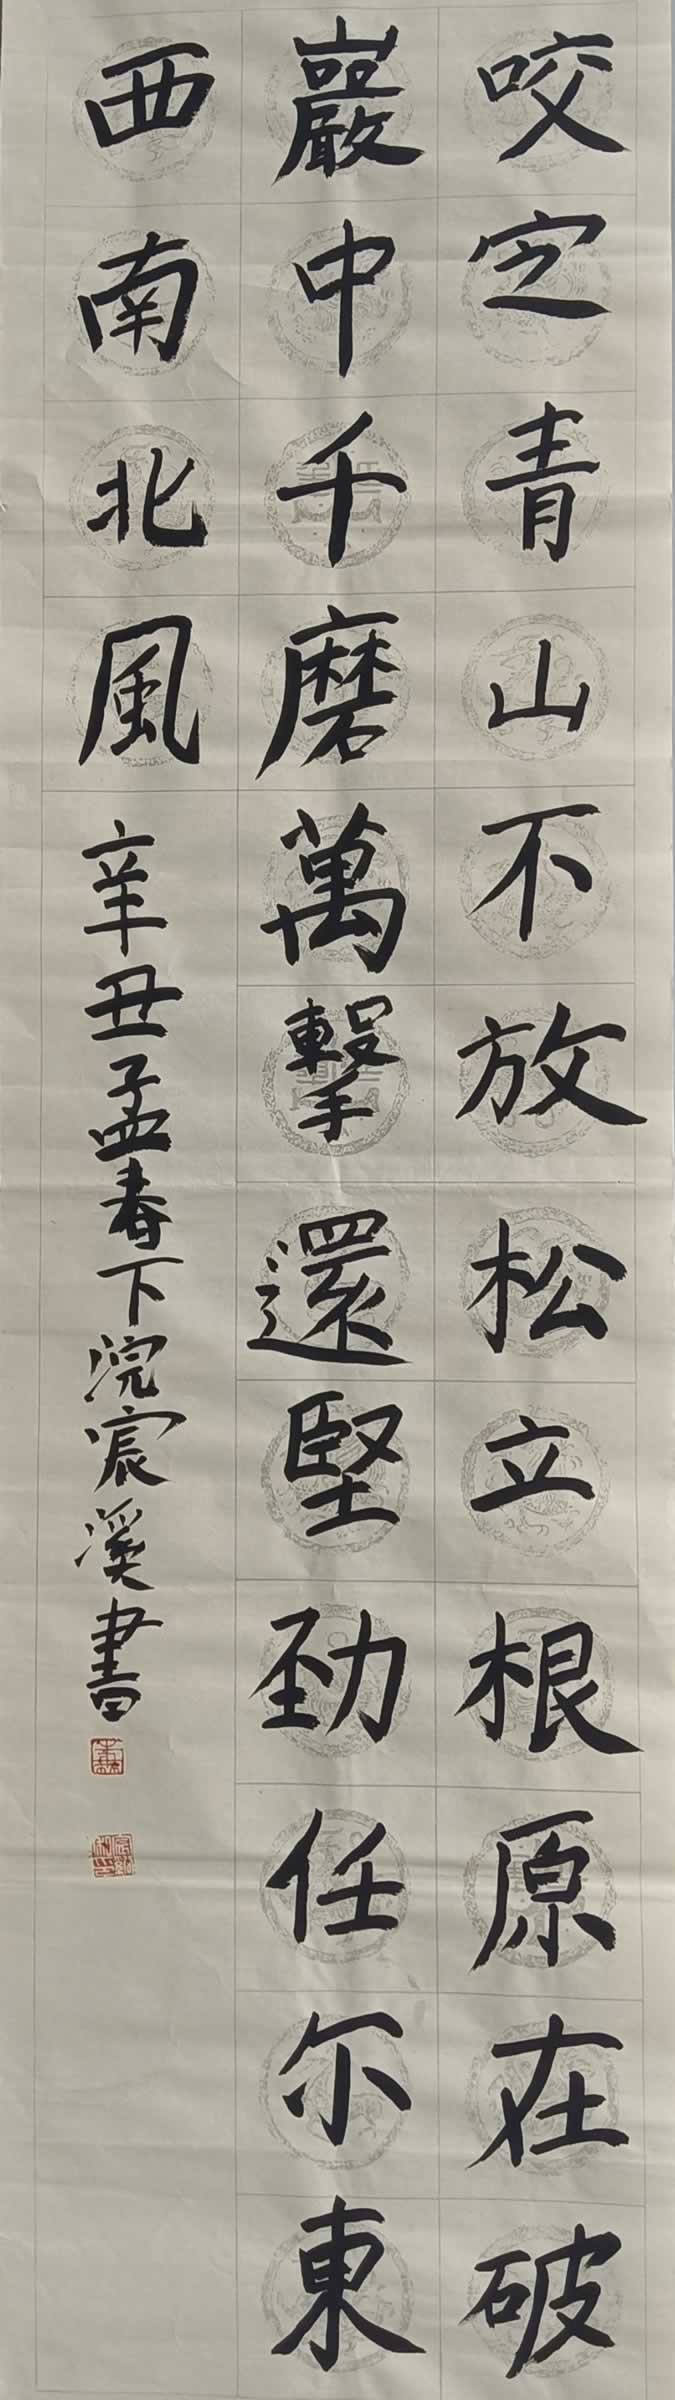 咬定青山不放松立根原在破
巖中千磨萬擊還堅勁任尔東
西南北風
辛丑孟春下浣宸溪書